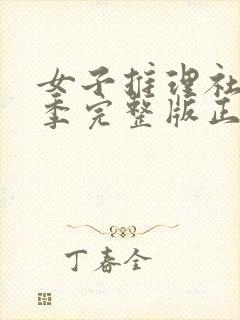 女子推理社
季完整版正
丁春全